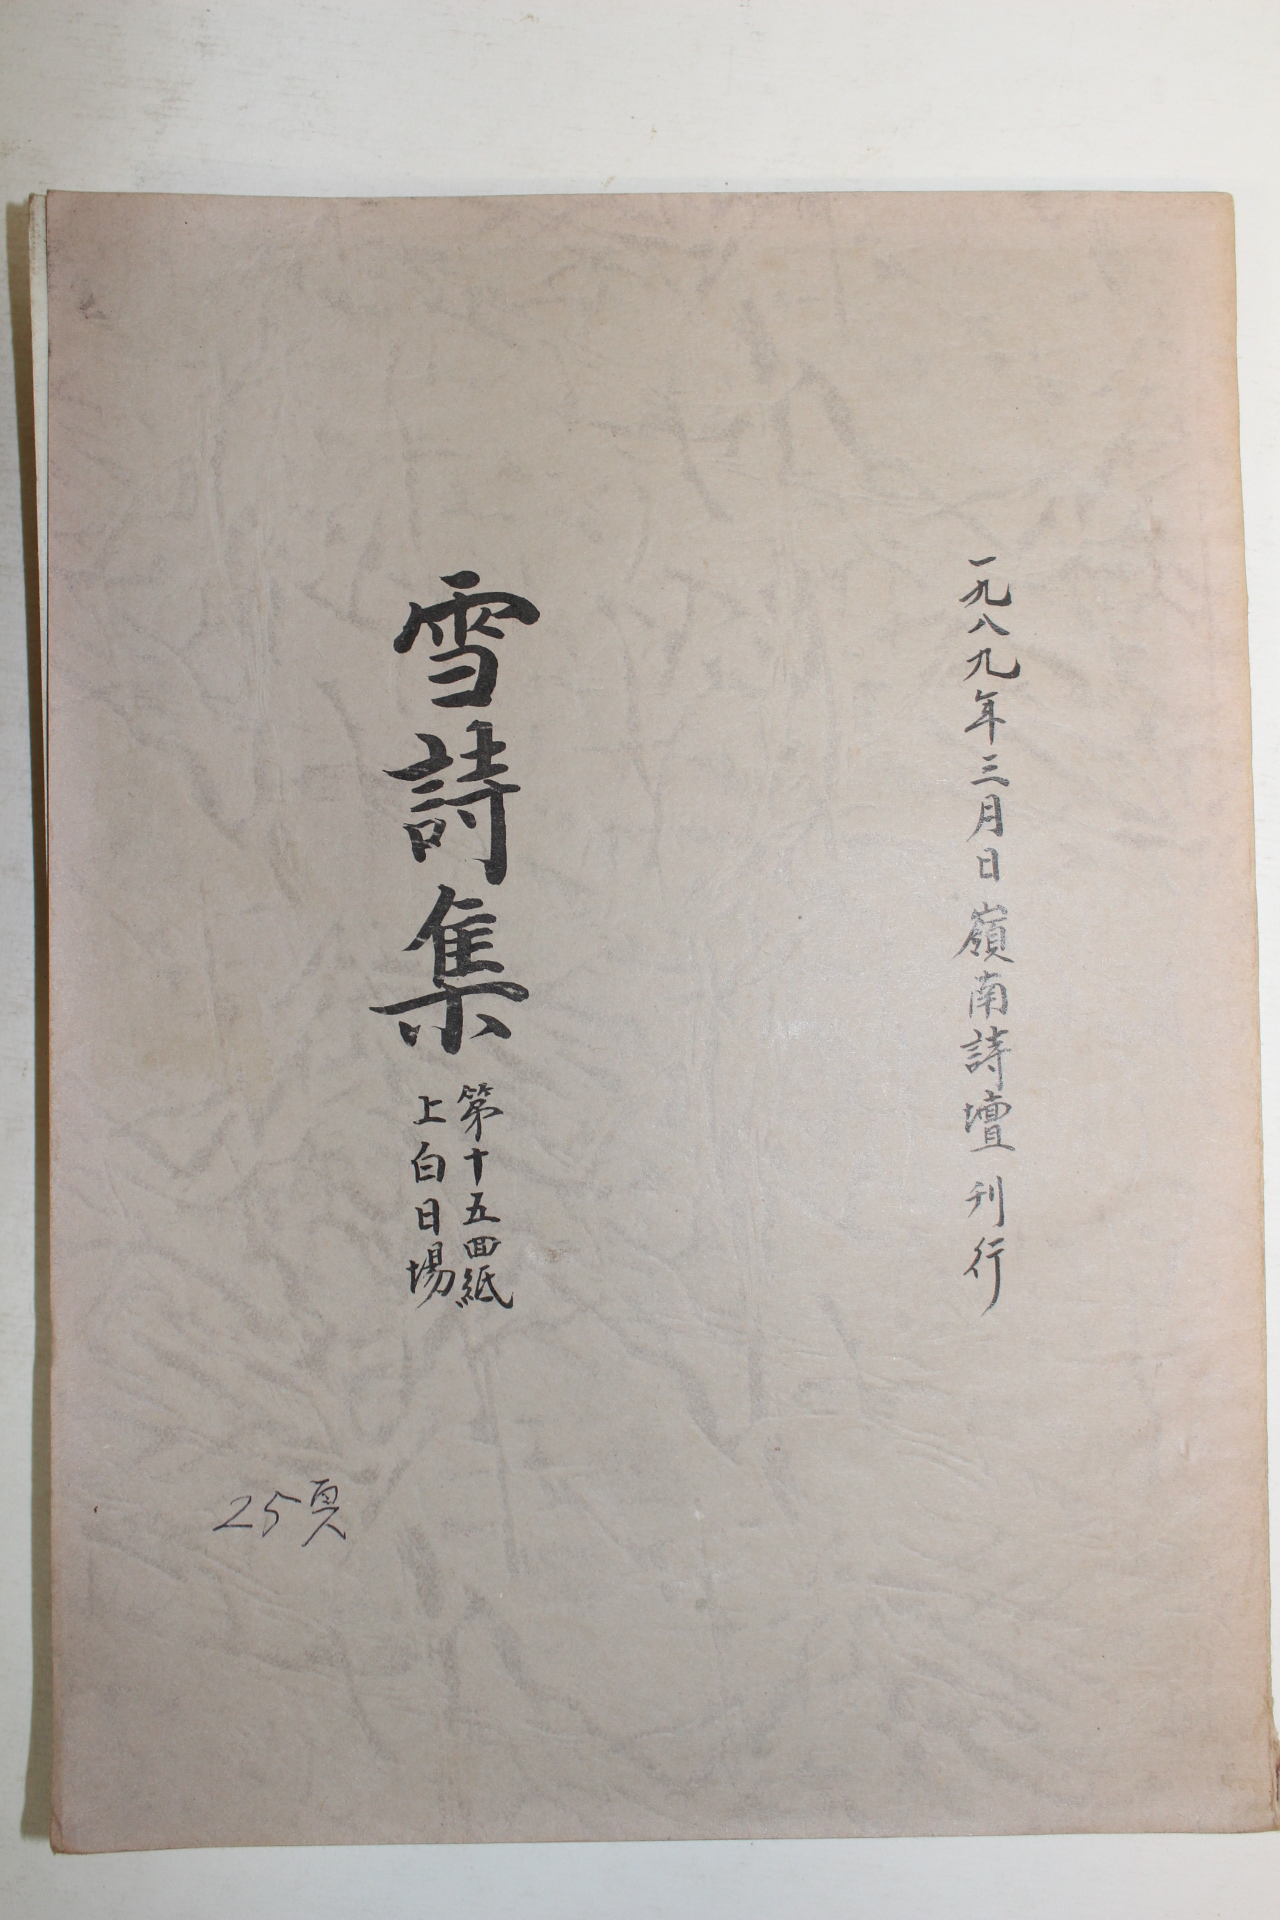 一九八九年三月日 嶺南詩壇 刊行
雪詩集
第十五回紙
上白日場
25頁